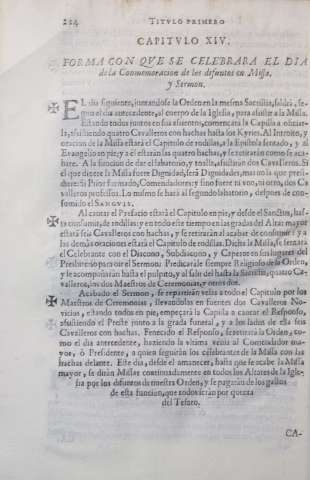 224 TITVLO PRIMERO
CAPITVLO XIV.
FORMA CON QVE SE CELEBRARA EL DIA
de la Conmemoracion de los difuntos en Missa,
y Sermon.
EL dia siguiente, juntandose la Orden en la mesma Sacristia, saldrà, se-
gun el dia antecedente, al cuerpo de la Iglesia, para assistir a la Missa.
Estando todos juntos en sus assientos, començarà la Capilla a oficiar-
la, assistiendo quatro Cavalleros con hachas hasta los Kyries. Al Introito, y
oracion de la Missa estarà el Capitulo de rodillas, a la Epistola sentado, y al
Evangelio en pie; y a èl estaràn las quatro hachas, y se retiraràn como se aca-
bare. A la funcion de dar el labatorio, y toalla, assistiràn dos Cavalleros. Si
el que dixere la Missa fuere Dignidad, serà Dignidades, mas no la que presi-
diere: si Prior formado, Comendadores: y sino fuere ni uno, ni otro, dos Ca-
valleros professos. Lo mesmo se harà al segundo labatorio, despues de con-
sumido el SANGVIS.
Al cantar el Prefacio estarà el Capitulo en pie, y desde el Sanctus, has-
ta consumir, de rodillas: y en todo este tiempo en las gradas del Altar mayor
estarà seis Cavalleros con hachas, y se retiraràn al acabar de consumir: y a
las demàs oraciones estarà el Capitulo de rodillas. Dicha la Missa, se sentarà
el Celebrante con el Diacono, Subdiacono, y Capero en sus lugares del
Presbiterio para oir el Sermon. Predicarale siempre Religioso de la Orden,
y le acompañaràn hasta el pulpito, y al salir del hasta la Sacristia, quatro Ca-
valleros, los dos Maestros de Ceremonias, y otros dos.
Acabado el Sermon, se repartiràn velas a todo el Capitulo por los
Maestros de Ceremonias, llevandolas en fuentes dos Cavalleros No-
vicios, y estando todos en pie, empeçarà la Capilla a cantar el Responso,
assistiendo el Preste junto a la grada funeral, y a los lados de ella seis
Cavalleros con hachas. Fenecido el Responso, se retirarà la Orden, co-
mo el dia antecedente, haziendo la ultima venia al Comendador ma-
yor, ò Presidente, a quien seguiràn los celebrantes de la Missa con las
hachas delante. Este dia, desde el amanecer, hasta que se acabe la Missa
mayor, se diràn Missas continuadamente en todos los Altares de la Igle-
sia por los difuntos de nuestra Orden, y se pagaràn de los gastos
de esta funcion, que todos iràn por quenta
del Tesoro.
CA-